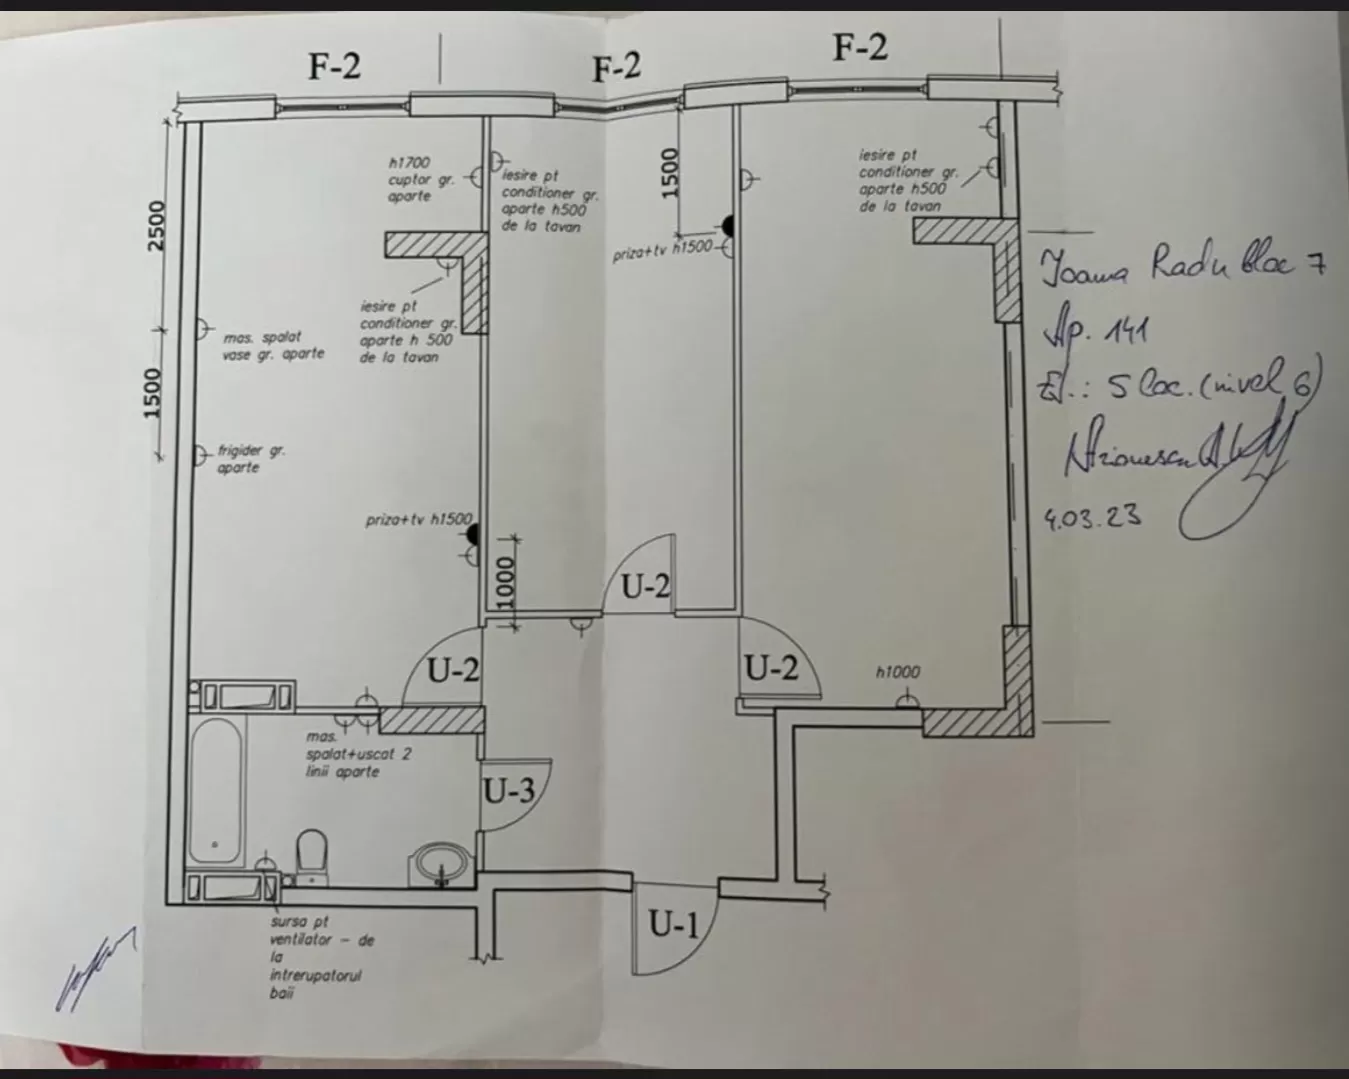 F-2
F-2
F-2
h1700
cuptor gr.
aparte
iesire pt
conditioner gr.
aparte h500
de la tavan
1500
iesire pt
conditioner gr.
aparte h500
de la tavan
2500
priza+tv h1500
Ioana Radu bloc 7
Ap. 141
Et.: 5 loc. (nivel 6)
4.03.23
iesire pt
conditioner gr.
aparte h 500
de la tavan
mas. spalat
vase gr. aparte
1500
frigider gr.
aparte
priza+tv h1500
1000
U-2
U-2
U-2
h1000
mas.
spalat+uscat 2
linii aparte
U-3
U-1
sursa pt
ventilator – de
la
intrerupatorul
baii